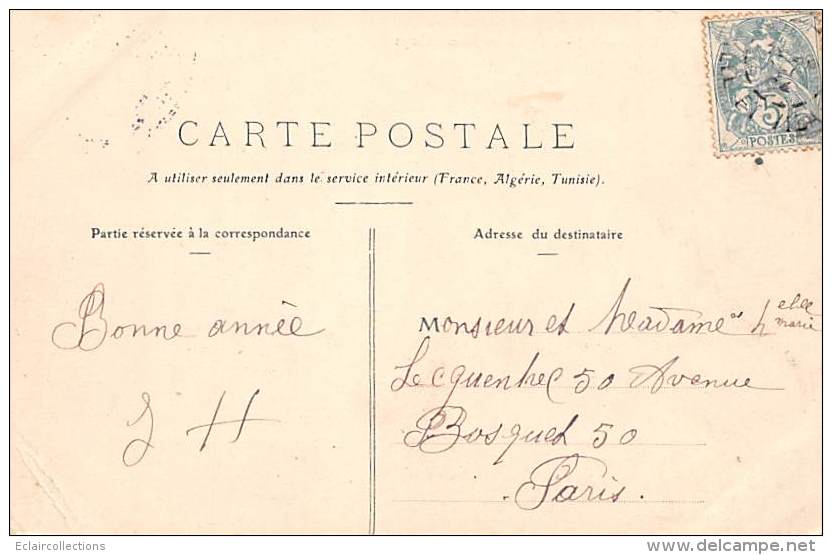 CARTE POSTALE
A utiliser seulement dans le service intérieur (France, Algérie, Tunisie).
Partie réservée à la correspondance
Adresse du destinataire
Bonne année
J H
Monsieur et Madame
elle
marie
Lecquenhec 50 Avenue
Bosquet 50
Paris.
5
POSTES
Eclaircollections
www.delcampe.net